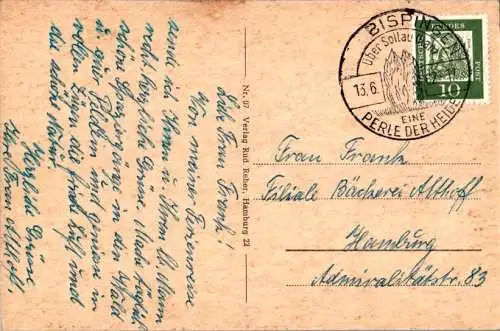 Liebe Frau Frank!
Von meiner Ferienreise
sende ich Ihnen u. Ihrem Lb. Mann
recht herzliche Grüße. Mache täglich
schöne Spaziergänge in den Wald
u. zum Baden und genieße in
vollen Zügen die frische Luft und
die schöne Natur
Herzliche Grüße
Ihre Frau Althoff
Nr. 97 Verlag Rud. Reher, Hamburg 22
BISPINGEN
über Soltau
13.6.
EINE
PERLE DER HEIDE
DEUTSCHE BUNDESPOST
10
Frau Frank
Filiale Bäckerei Althoff
Hamburg
Admiralitätstr. 83